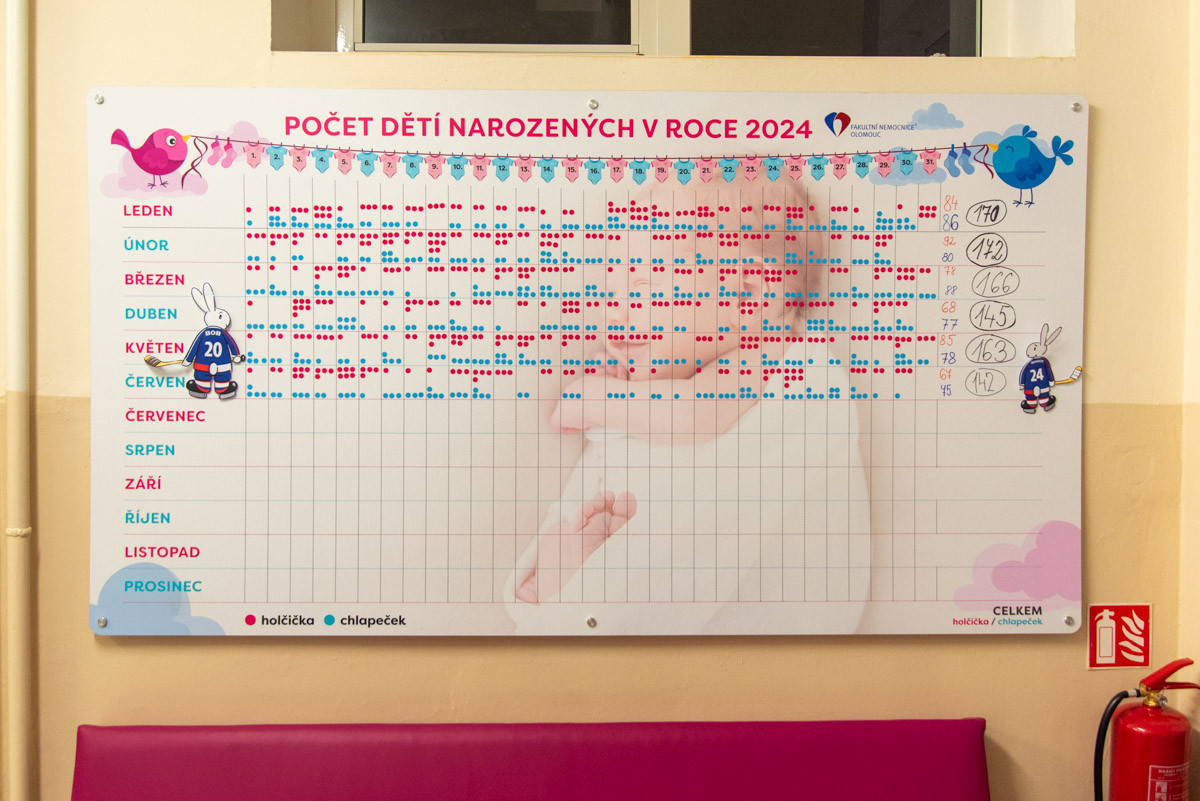 POČET DĚTÍ NAROZENÝCH V ROCE 2024
FAKULTNÍ NEMOCNICE
OLOMOUC
1. 2. 3. 4. 5. 6. 7. 8. 9. 10. 11. 12. 13. 14. 15. 16. 17. 18. 19. 20. 21. 22. 23. 24. 25. 26. 27. 28. 29. 30. 31.
LEDEN 84 86 170
ÚNOR 92 80 172
BŘEZEN 78 88 166
DUBEN 68 77 145
KVĚTEN 85 78 163
ČERVEN 67 142
ČERVENEC
SRPEN
ZÁŘÍ
ŘÍJEN
LISTOPAD
PROSINEC
BOB
20
24
holčička chlapeček
CELKEM
holčička / chlapeček